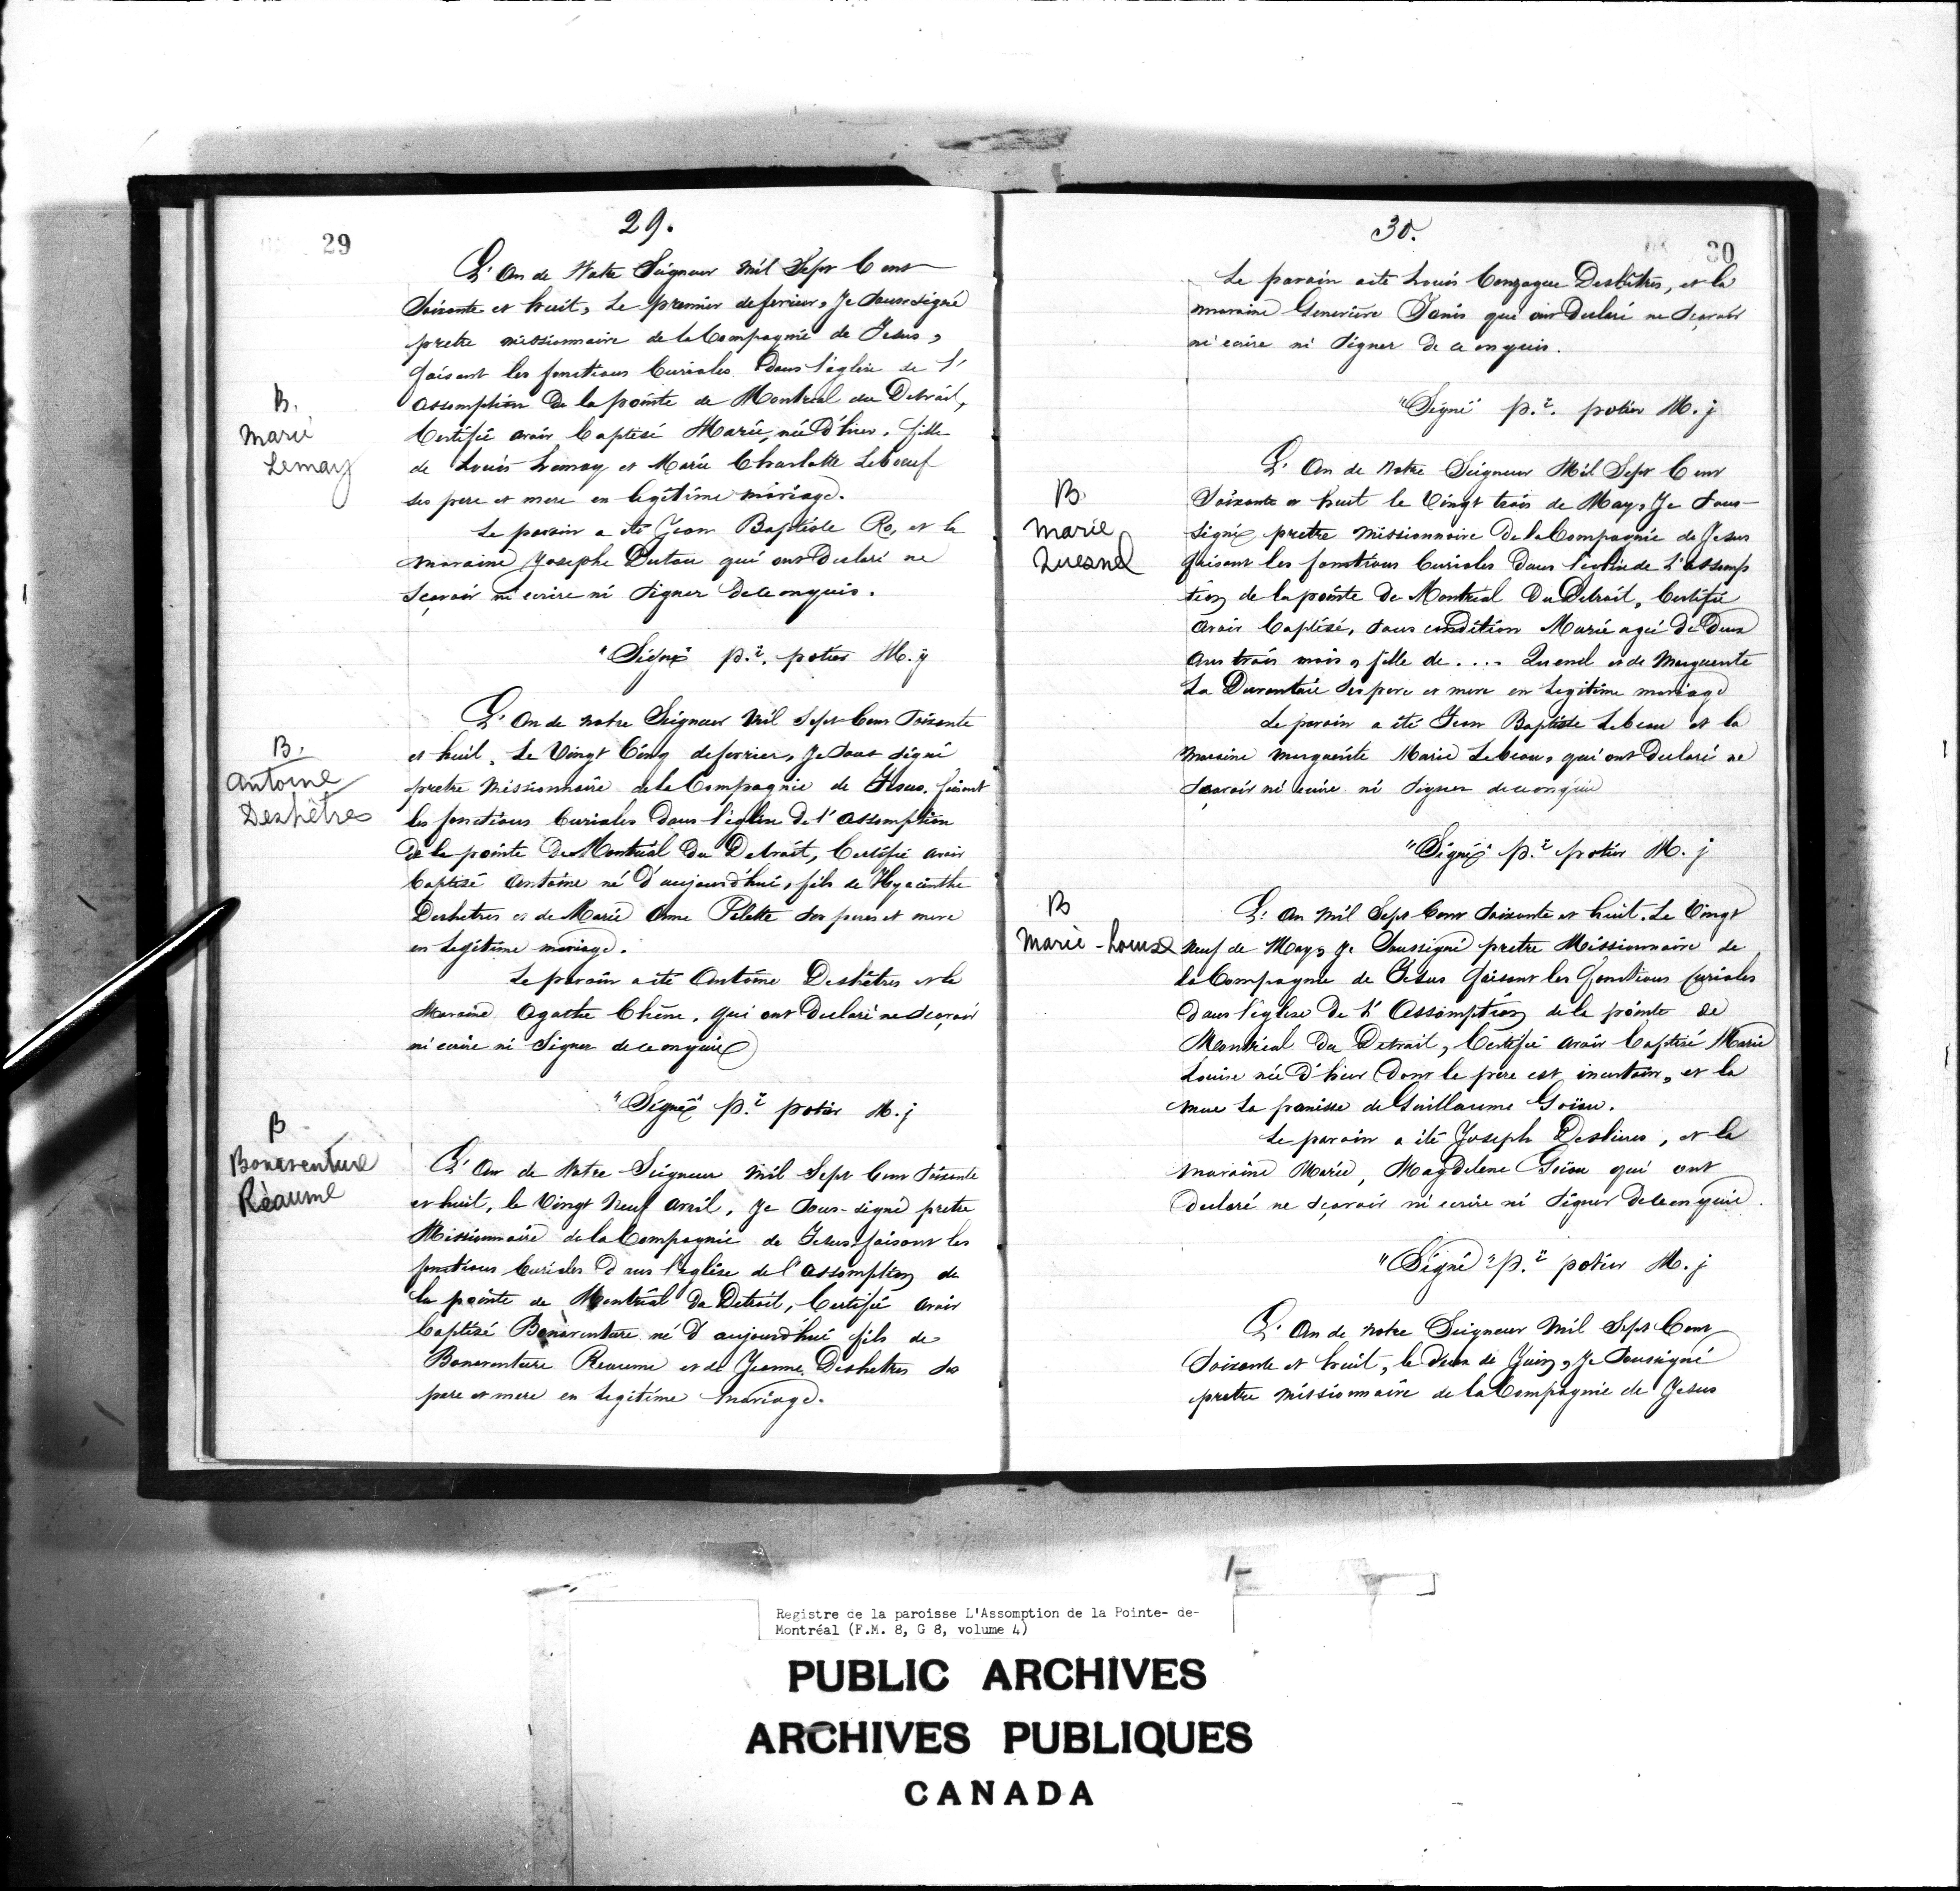 29
29.
L'An de Notre Seigneur Mil Sept Cent
Soixante et huit, Le premier de fevrier, Je Soussigné
pretre missionnaire de la Compagnie de Jesus,
faisant les fonctions Curiales Dans l'église de l'
Assomption De la pointe de Montreal du Detroit,
Certifie avoir Baptisé Marie, née D'hier, fille
de Louis Lemay et Marie Charlotte Leboeuf
ses pere et mere en legitime mariage.
B.
Marie
Lemay
Le parain a été Jean Baptiste Ro, et la
maraine Josephe Dutau qui ont Declaré ne
Scavoir ni ecrire ni Signer de ce enquis.
"Signé" p.re potier M. j
B.
Antoine
Deshêtres
L'An de notre Seigneur Mil Sept Cent Soixante
et huit, Le Vingt Cinq de fevrier, Je Sous signé
pretre Missionnaire de la Compagnie de Jesus, faisant
les fonctions Curiales dans l'église De l'Assomption
de la pointe De Montreal Du Detroit, Certifie avoir
Baptisé Antoine né D'aujourd'hui, fils de Hyacinthe
Deshetres et de Marie Anne Pilette ses peres et mere
en Legitime mariage.
Le parain a été Antoine Deshêtres et la
Maraine Agathe Chêne, qui ont Declaré ne scavoir
ni ecrire ni Signer de ce enquis
"Signé" p.re potier M. j
B
Bonaventure
Réaume
L'An de Notre Seigneur Mil Sept Cent Soixante
et huit, le Vingt Neuf Avril, Je Sous-signé pretre
Missionnaire de la Compagnie de Jesus faisant les
fonctions Curiales Dans l'église de l'Assomption de
la pointe de Montréal Du Detroit, Certifie avoir
Baptisé Bonaventure né D'aujourd'hui fils de
Bonaventure Reaume et de Jeanne Deshetres ses
pere et mere en Legitime mariage.
30.
30
Le parain a été Louis Gonzague Deshêtres, et la
maraine Genevieve Janis qui ont Declaré ne Scavoir
ni ecrire ni Signer De ce enquis.
"Signé" p.re potier M. j
B.
Marie
Quesnel
L'An de Notre Seigneur Mil Sept Cent
Soixante et huit le Vingt trois de May, Je Sous-
signé pretre Missionnaire De la Compagnie de Jesus
faisant les fonctions Curiales Dans l'église de L'assomp
tion de la pointe De Montreal Du Detroit, Certifie
avoir Baptisé, sous condition Marie agée De Deux
Ans trois mois, fille de .... Quenel et de Marguerite
La Durantaie ses pere et mere en Legitime mariage
Le parain a été Jean Baptiste Lebeau et la
Maraine Marguerite Marie Lebeau, qui ont Declaré ne
Scavoir ni ecrire ni Signer de ce enquis
"Signé" p.re potier M. j
B
Marie-Louise
L'An Mil Sept Cent Soixante et huit. Le Vingt
Neuf de May, Je Soussigné pretre Missionnaire de
la Compagnie de Jesus faisant les fonctions Curiales
Dans l'église De L'Assomption de la pointe de
Montréal Du Detroit, Certifie avoir Baptisé Marie
Louise née D'hier Dont le pere est incertain, et la
mere La panisse de Guillaume Goïau.
Le parain a été Joseph , et la
maraine Marie, Magdelene Goïau qui ont
declaré ne Sçavoir ni ecrire ni Signer De ce enquis.
"Signé" p.re potier M. j
L'An de Notre Seigneur Mil Sept Cent
Soixante et huit, le deux de Juin, Je Soussigné
pretre Missionnaire de la Compagnie de Jesus
Registre de la paroisse L'Assomption de la Pointe- de-
Montréal (F.M. 8, G 8, volume 4)
PUBLIC ARCHIVES
ARCHIVES PUBLIQUES
CANADA